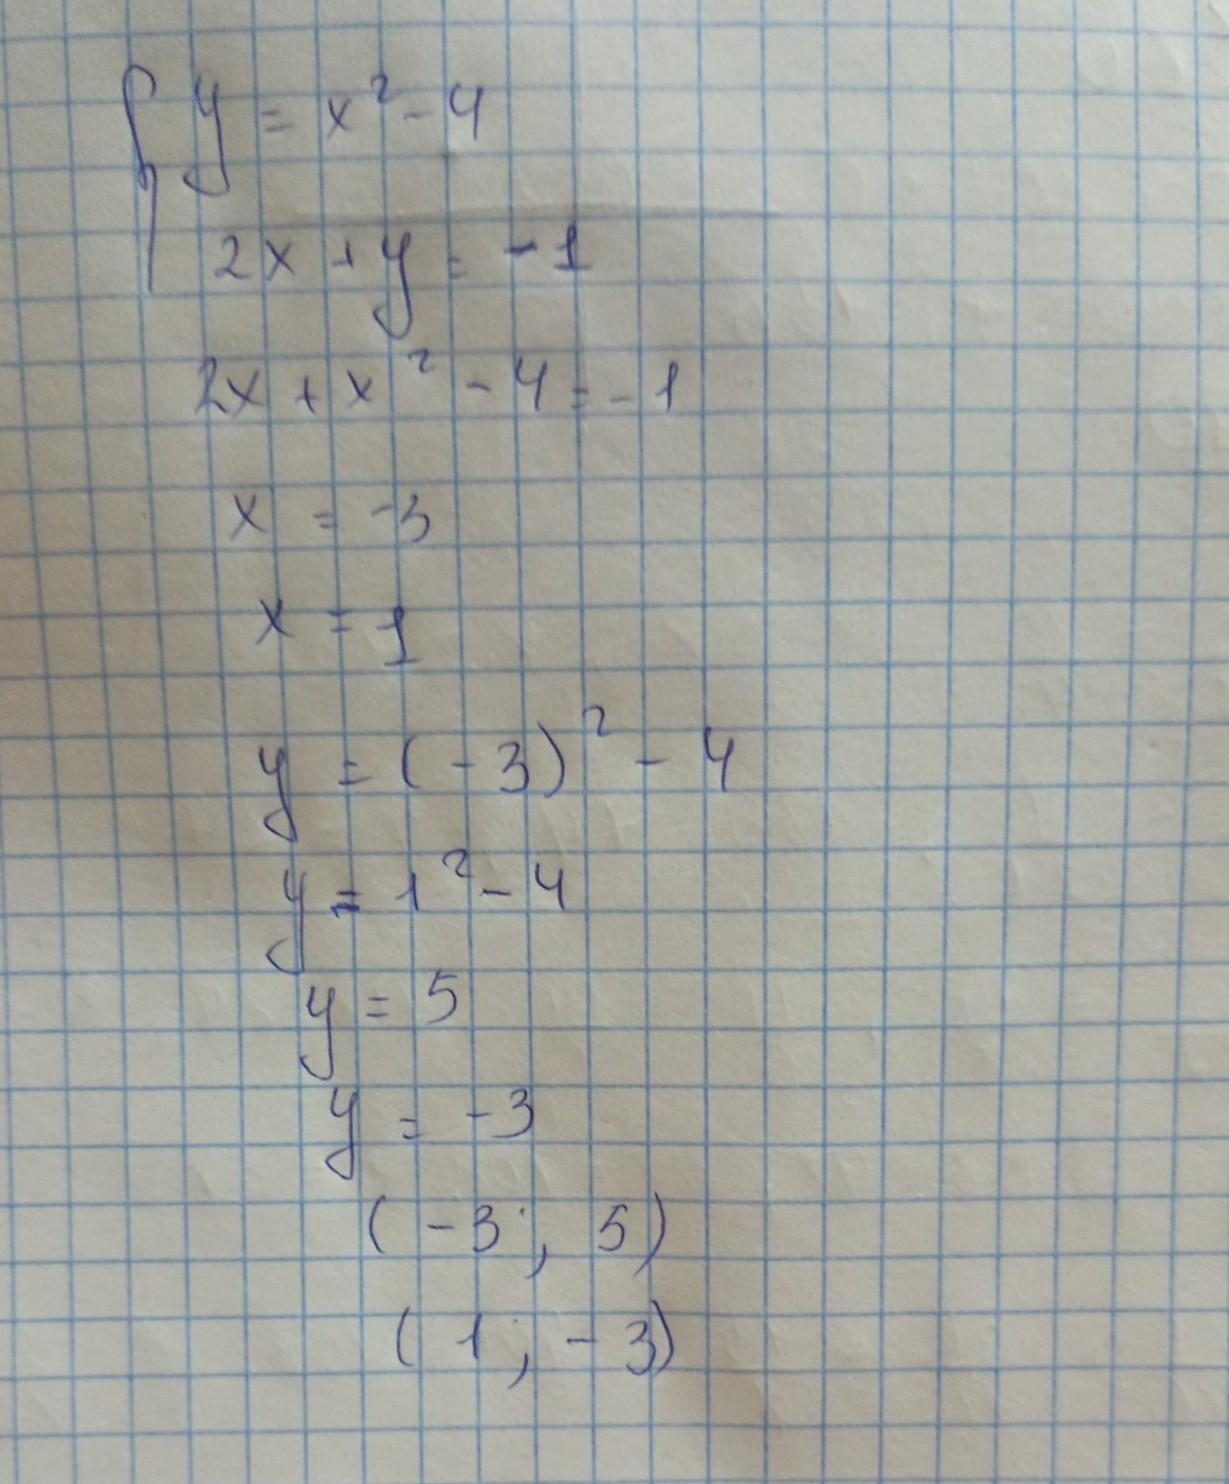 { y = x² - 4
2x + y = -1
2x + x² - 4 = -1
x = -3
x = 1
y = (-3)² - 4
y = 1² - 4
y = 5
y = -3
(-3; 5)
(1; -3)